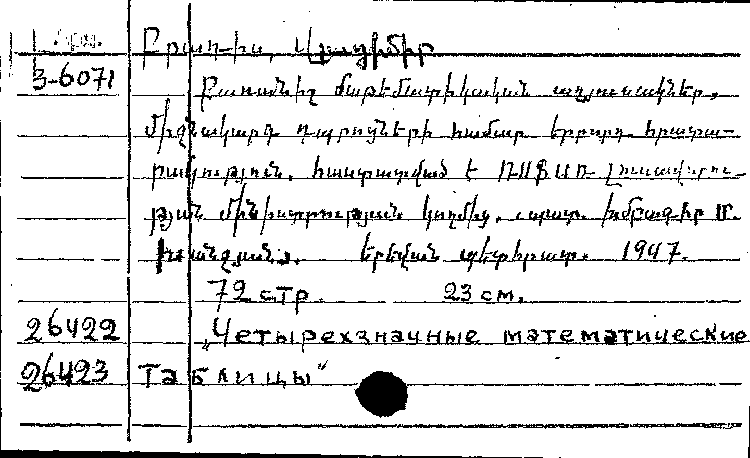 Բրադիս, Վլադիմիր
3-6071
Քառանիշ մաթեմատիկական աղյուսակներ.
Միջնակարգ դպրոցների համար. երրորդ հրատա-
րակություն. հաստատված է ՌՍՖՍՌ Լուսավորու-
թյան մինիստրության կողմից. պատ. խմբագիր Մ.
Երևան պետհրատ. 1947.
72 стр. 23 см.
26422 „Четырехзначные математические
26423 таблицы“